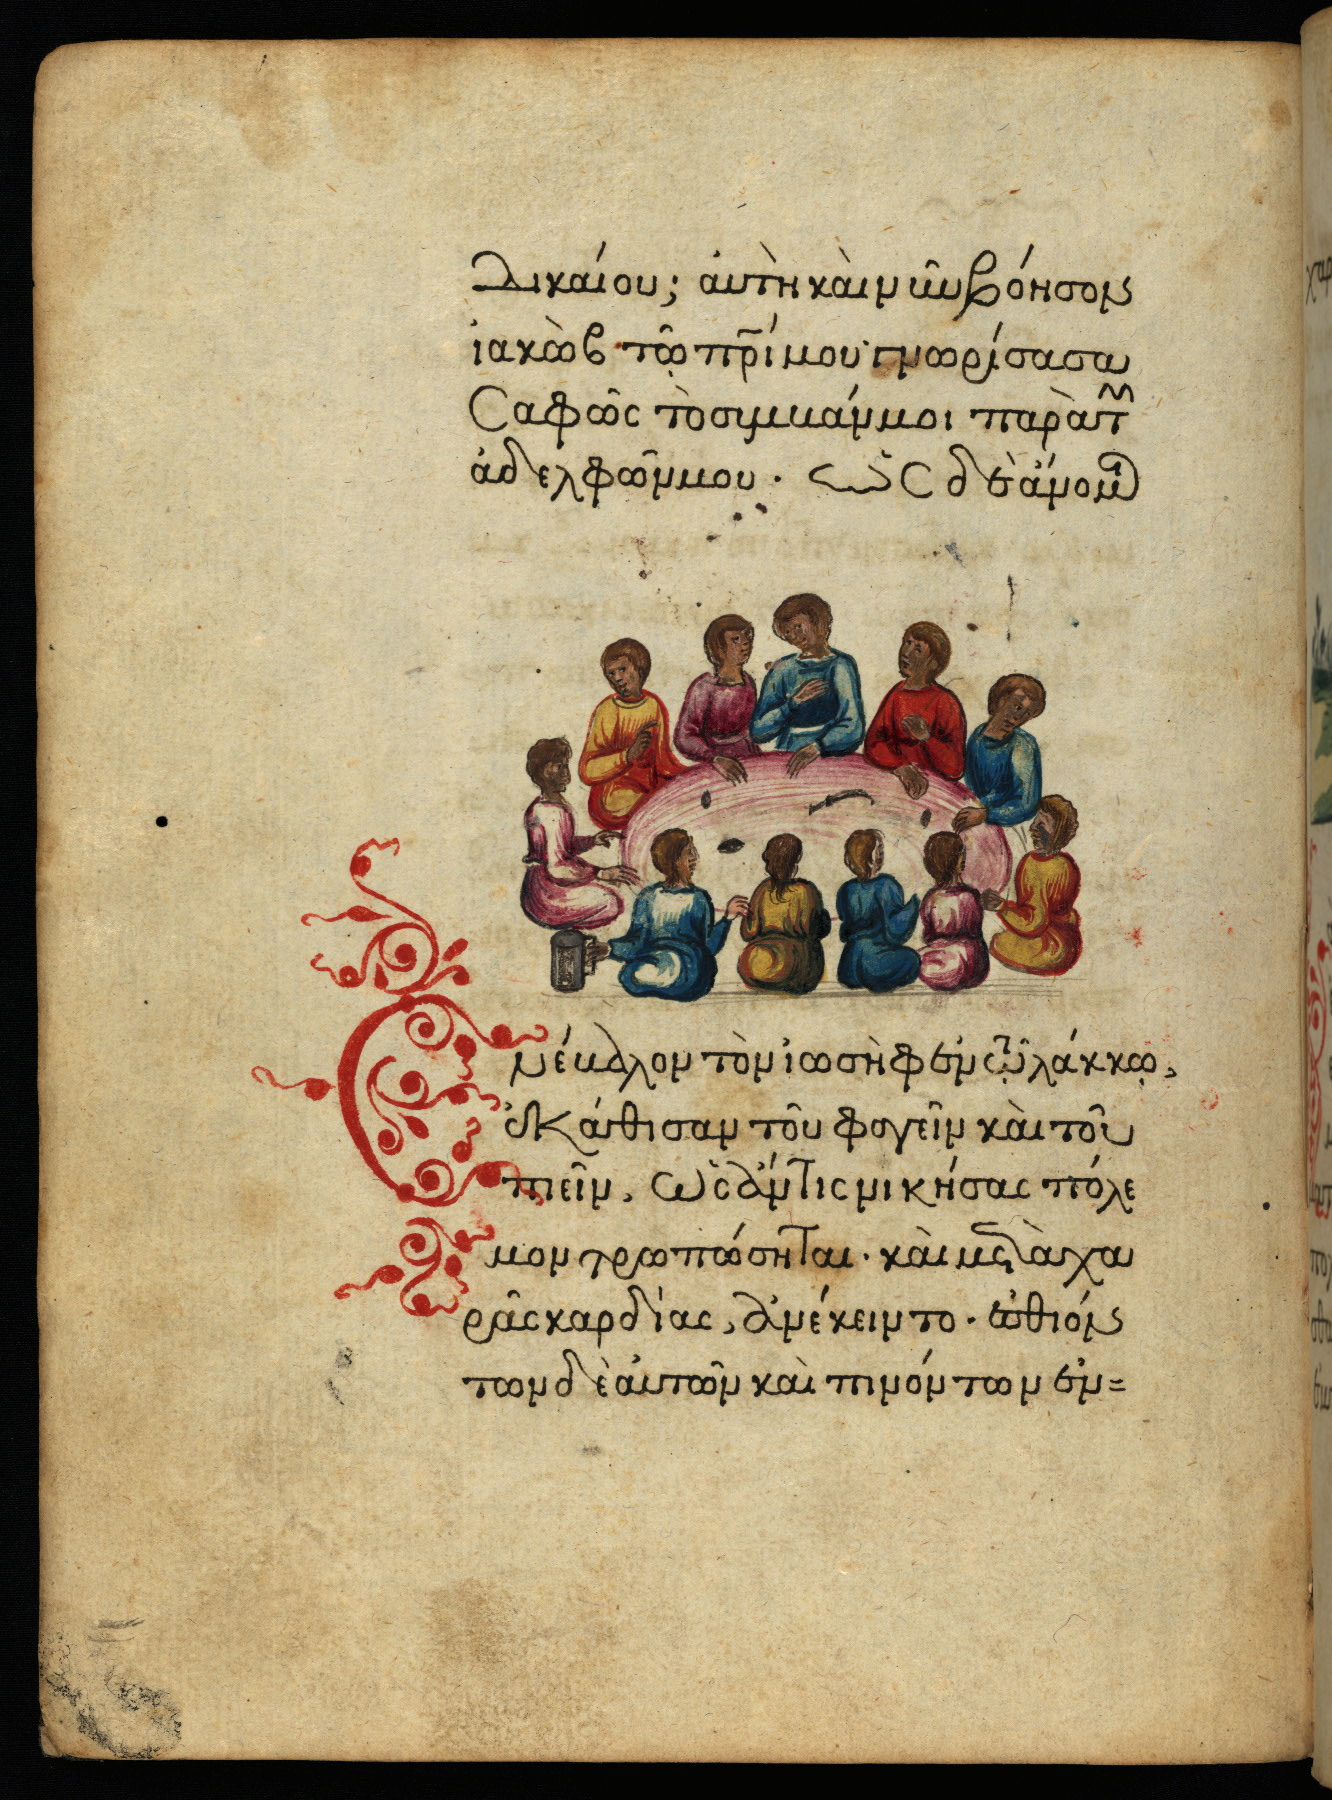 Δικαίου; ἀυτὴ κὰι νῦν βόησον
ἰακὼβ τῶ πρ̅ί μου· γνωρίσασα
Σαφῶς τὸ συμβάν μοι παρὰ τ
ἀδελφῶν μου· ὡς δὲ
Ενέβαλον τὸν ἰωσὴφ ἐν τῶ λάκκω,
ἐκάθισαν τοῦ φαγεῖν κὰι τοῦ
πιεῖν, ὡς ἄν τις νικήσας πόλε
μον τροπώσηται· κὰι μετὰ χα
ρᾶς καρδίας, ἀνέκειντο· ἐσθιόν
των δὲ ἀυτῶν κὰι πινόντων ἐν=